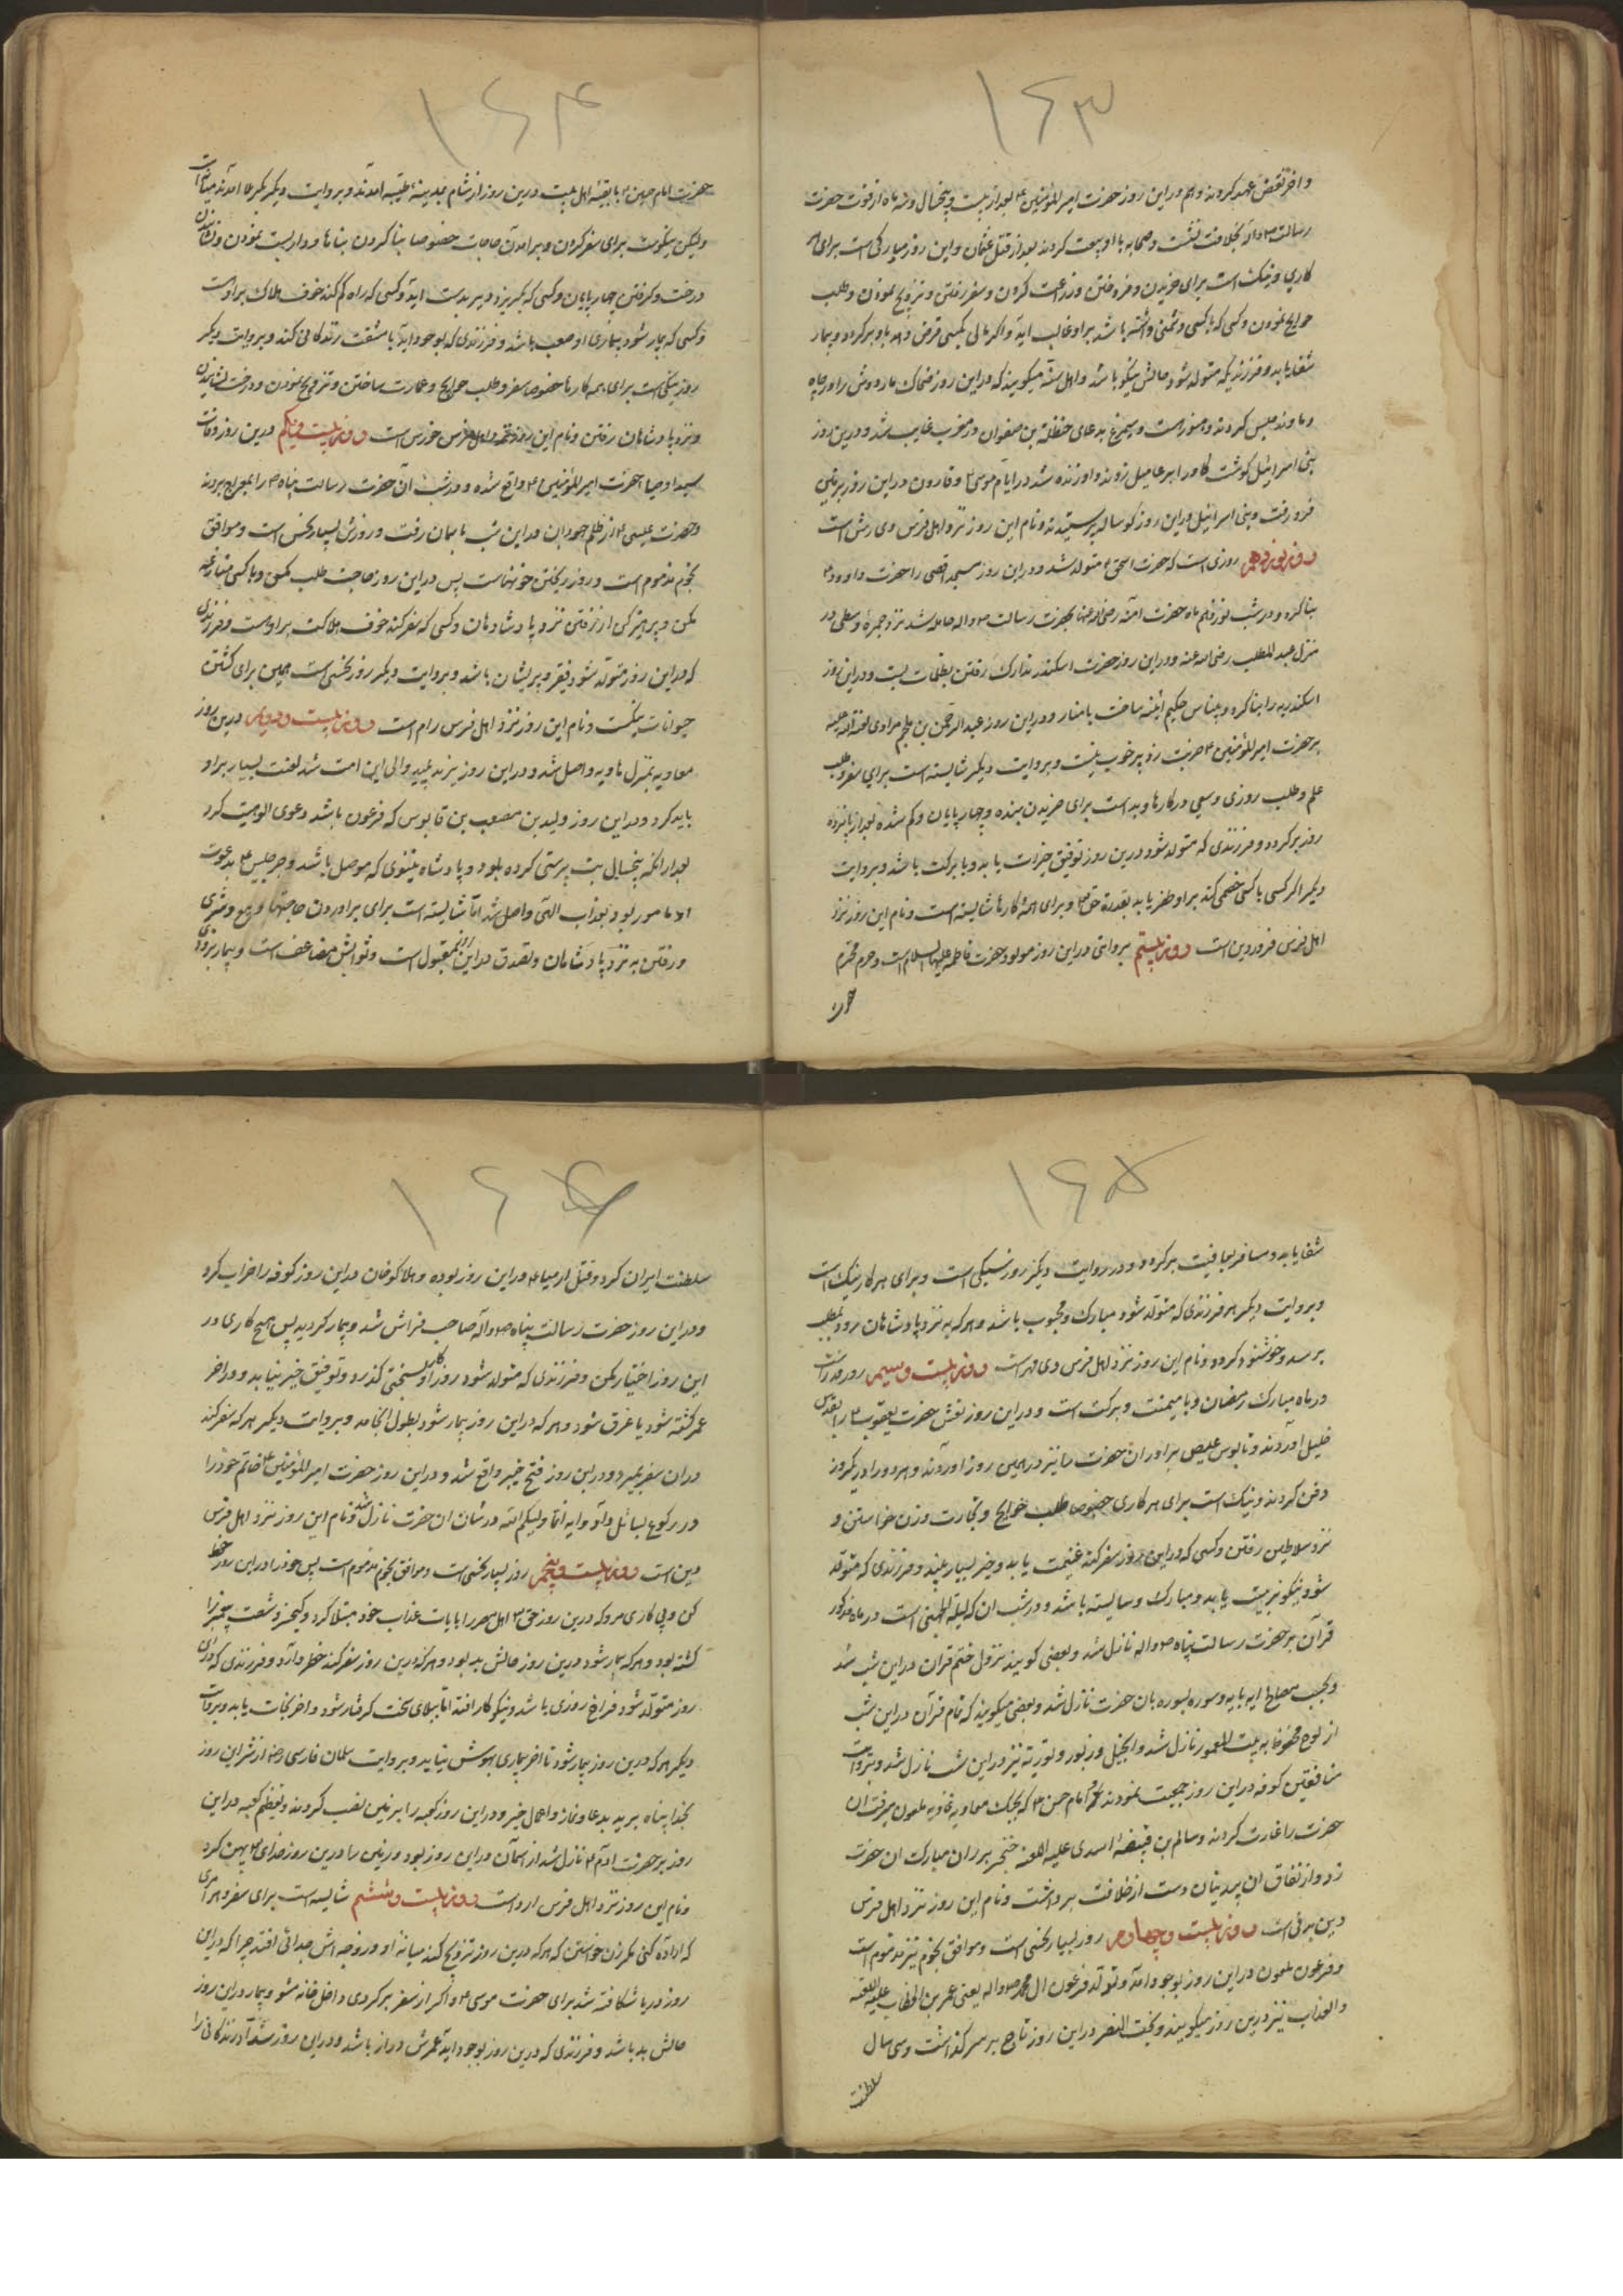 ۱۶۳
و اخر نقض عهد کردند و هم در این روز حضرت امیر المؤمنین ع بعد از بیست و پنجسال و نه ماه از فوت حضرت
رسالت ص و آله بخلافت نشست و صحابه با او بیعت کردند بعد از قتل عثمان و این روز مبارکی است برای هر
کاری و نیک است برای خریدن و فروختن و زراعت کردن و سفر رفتن و تزویج نمودن و طلب
حوایج نمودن و کسی که با کسی دشمنی داشته باشد بر او غالب اید و اگر مالی بکسی قرض دهد باو برگردد و بیمار
شفا یابد و فرزندیکه متولد شود حالش نیکو باشد و اهل سنه میگویند که در این روز ضحاک ماردوش را در چاه
دماوند حبس کردند و هنوز است و سیمرغ بدعای حنظلة بن صفوان در مغرب غایب شد و درین روز
بنی اسرائیل گوشت گاو را بر عامیل زدند و او زنده شد در ایام موسی ع و قارون در این روز بزمین
فرو رفت و بنی اسرائیل در این روز گوساله پرستیدند و نام این روز نزد اهل فرس وی رش است
روز نوزدهم روزی است که حضرت اسحق ع متولد شد و در این روز مسجد اقصی را حضرت داود ع
بنا کرد و در شب نوزدهم ماه حضرت آمنه رضی الله عنها بحضرت رسالت ص و اله حامله شد نزد جمرهٔ وسطی در
منزل عبد المطلب رضی الله عنه و در این روز حضرت اسکندر تدارک رفتن بظلمات بست و در این روز
اسکندریه را بنا کرد و بلیناس حکیم ائینه ساخت با منار و در این روز عبد الرحمن بن ملجم مرادی لعنة الله علیه
بر حضرت امیر المؤمنین ع ضربت زد بر خوب نیست و بروایت دیگر شایسته است برای سفر و طلب
علم و طلب روزی و سعی در کارها و بد است برای خریدن بنده و چهارپایان و گم شده بعد از پانزده
روز برگردد و فرزندی که متولد شود درین روز توفیق خیرات یابد و با برکت باشد و بروایت
دیگر اگر کسی با کسی خصمی کند بر او ظفر یابد بقدرة حق تع و برای همهٔ کارها شایسته است و نام این روز نزد
اهل فرس فروردین است روز بیستم بروایتی در این روز مولود حضرت فاطمه علیها السلام است و حرم محترم
حضرت
۱۶۴
حضرت امام حسین ع با بقیهٔ اهل بیت درین روز از شام بمدینهٔ طیبه آمدند و بروایت دیگر بکربلا آمدند میانه است
ولیکن نیکوست برای سفر کردن و برآمدن حاجات خصوصا بنا کردن بناها و دواربست نمودن و نشاندن
درخت و گرفتن چهارپایان و کسی که بگریزد دیر بدست اید و کسی که راه گم کند خوف هلاک بر اوست
و کسی که بیمار شود بیماری او صعب باشد و فرزندی که بوجود اید با مشقت زندگانی کند و بروایت دیگر
روز نیکی است برای همه کارها خصوصا سفر و طلب حوایج و عمارت ساختن و تزویج نمودن و درخت نشانیدن
و نزد پادشاهان رفتن و نام این روز نزد اهل فرس خورس است روز بیست و یکم درین روز وفات
سید اوصیا حضرت امیر المؤمنین ع واقع شده و در شب آن حضرت رسالت پناه ص را بمعراج بردند
و حضرت عیسی ع از ظلم جهودان در این شب باسمان رفت و روزش بسیار نحس است و موافق
نجوم مذموم است و روز ریختن خونهاست پس در این روز حاجت طلب مکن و با کسی منازعه
مکن و پرهیز کن از رفتن نزد پادشاهان و کسی که سفر کند خوف هلاکت بر اوست و فرزندی
که در این روز متولد شود فقیر و پریشان باشد و بروایت دیگر روز نحسی است همین برای کشتن
حیوانات نیکست و نام این روز نزد اهل فرس رام است روز بیست و دویم درین روز
معاویه بمنزل هاویه واصل شد و در این روز یزید پلید والی این امت شد لعنت بسیار بر او
باید کرد و در این روز ولید بن مصعب بن قابوس که فرعون باشد دعوی الوهیت کرد
بعد از انکه پنجسال بت پرستی کرده بود و پادشاه نینوی که موصل باشد و جرجیس ع بدعوت
او مامور بود بعذاب الهی واصل شد اما شایسته است برای براوردن حاجتها و بیع و شری
و رفتن به نزد پادشاهان و تصدق در این روز مقبول است و ثوابش مضاعف است و بیمار بزودی
۱۶۵
شفا یابد و مسافر بعافیت برگردد و در روایت دیگر روز سبکی است و برای هر کار نیک است
و بروایت دیگر هر فرزندی که متولد شود مبارک و محبوب باشد و هر که به نزد پادشاهان رود بمطلب
برسد و خوشنود گردد و نام این روز نزد اهل فرس دی مهر است روز بیست و سیم روز مبارکست
در ماه مبارک رمضان و با میمنت و برکت است و در این روز نعش حضرت یعقوب ع را بقدس
خلیل اوردند و تابوس عیص برادر ان حضرت را نیز در همین روز اوردند و هر دو را در یکروز
دفن کردند و نیک است برای هر کاری خصوصا طلب حوایج و تجارت و زن خواستن و
نزد سلاطین رفتن و کسی که در این روز سفر کند غنیمت یابد و خیر بسیار بیند و فرزندی که متولد
شود نیکو تربیت یابد و مبارک و شایسته باشد و در شب ان که لیلة الجهنی است در ماه مذکور
قرآن بر حضرت رسالت پناه ص واله نازل شد و بعضی گویند نزول ختم قرآن در این شب شد
و بحسب مصلحها ایه بایه و سوره بسوره بان حضرت نازل شد و بعضی میگویند که تمام قرآن در این شب
از لوح محفوظ به بیت المعمور نازل شد و انجیل و زبور و توریة نیز در این شب نازل شد و بروایت
منافقین کوفه در این روز جمعیت نمودند امام حسن ع که بجنگ معاویه غاویه ملعون میرفت ان
حضرت را غارت کردند و سالم بن قبیضهٔ اسدی علیه اللعنه خنجر بر ران مبارک ان حضرت
زد و از نفاق ان بیدینان دست از خلافت برداشت و نام این روز نزد اهل فرس
دین برفی است روز بیست و چهارم روز بسیار نحسی است و موافق نجوم نیز مذموم است
و فرعون ملعون در این روز بوجود امد و تولد فرعون ال محمد ص واله یعنی عمر بن الخطاب علیه اللعنه
والعذاب نیز درین روز میگویند و بخت النصر در این روز تاج بر سر گذاشت و سی سال
سلطنت
۱۶۶
سلطنت ایران کرد و قتل ارمیا ع در این روز بوده و هلاکوخان در این روز کوفه را خراب کرد
و در این روز حضرت رسالت پناه ص و آله صاحب فراش شد و بیمار گردید پس هیچ کاری در
این روز اختیار مکن و فرزندی که متولد شود روزگار او بسختی گذرد و توفیق خیر نیابد و در اخر
عمر کشته شود یا غرق شود و هر که در این روز بیمار شود بطول انجامد و بروایت دیگر هر که سفر کند
در ان سفر بمیرد و در این روز فتح خیبر واقع شد و در این روز حضرت امیر المؤمنین ع خاتم خود را
در رکوع بسائل داد و ایه انما ولیکم الله در شان ان حضرت نازل شد و نام این روز نزد اهل فرس
دین است روز بیست و پنجم روز بسیار نحسی است و موافق نجوم مذموم است پس خود را در این روز حفظ
کن و پی کاری مرو که درین روز حق تع اهل مصر را بایات عذاب خود مبتلا کرد و کیخسرو شصت پیغمبر را
کشته بود و هر که بیمار شود درین روز حالش بد بود و هر که درین روز سفر کند خطر دارد و فرزندی که در این
روز متولد شود فراخ روزی باشد و نیکوکار افتد اما ببلای سخت گرفتار شود و اخر نجات یابد و بروایت
دیگر هر که درین روز بیمار شود تا اخر بیماری بهوش نیاید و بروایت سلمان فارسی رض از شر این روز
بخدا پناه برید بدعا و نماز و اعمال خیر و در این روز کعبه را بر زمین نصب کردند و تعظیم کعبه در این
روز بر حضرت ادم ع نازل شد از اسمان در این روز بود و زمین را درین روز خدای تع پهن کرد
و نام این روز نزد اهل فرس ارد است روز بیست و ششم شایسته است برای سفر و هر امری
که اراده کنی مگر زن خواستن که هر که درین روز تزویج کند میانه او و زوجه اش جدائی افتد چرا که در این
روز دریا شکافته شد برای حضرت موسی ع و اگر از سفر برگردی داخل خانه مشو و بیمار در این روز
حالش بد باشد و فرزندی که درین روز بوجود اید عمرش دراز باشد و در این روز شداد زندگانی را